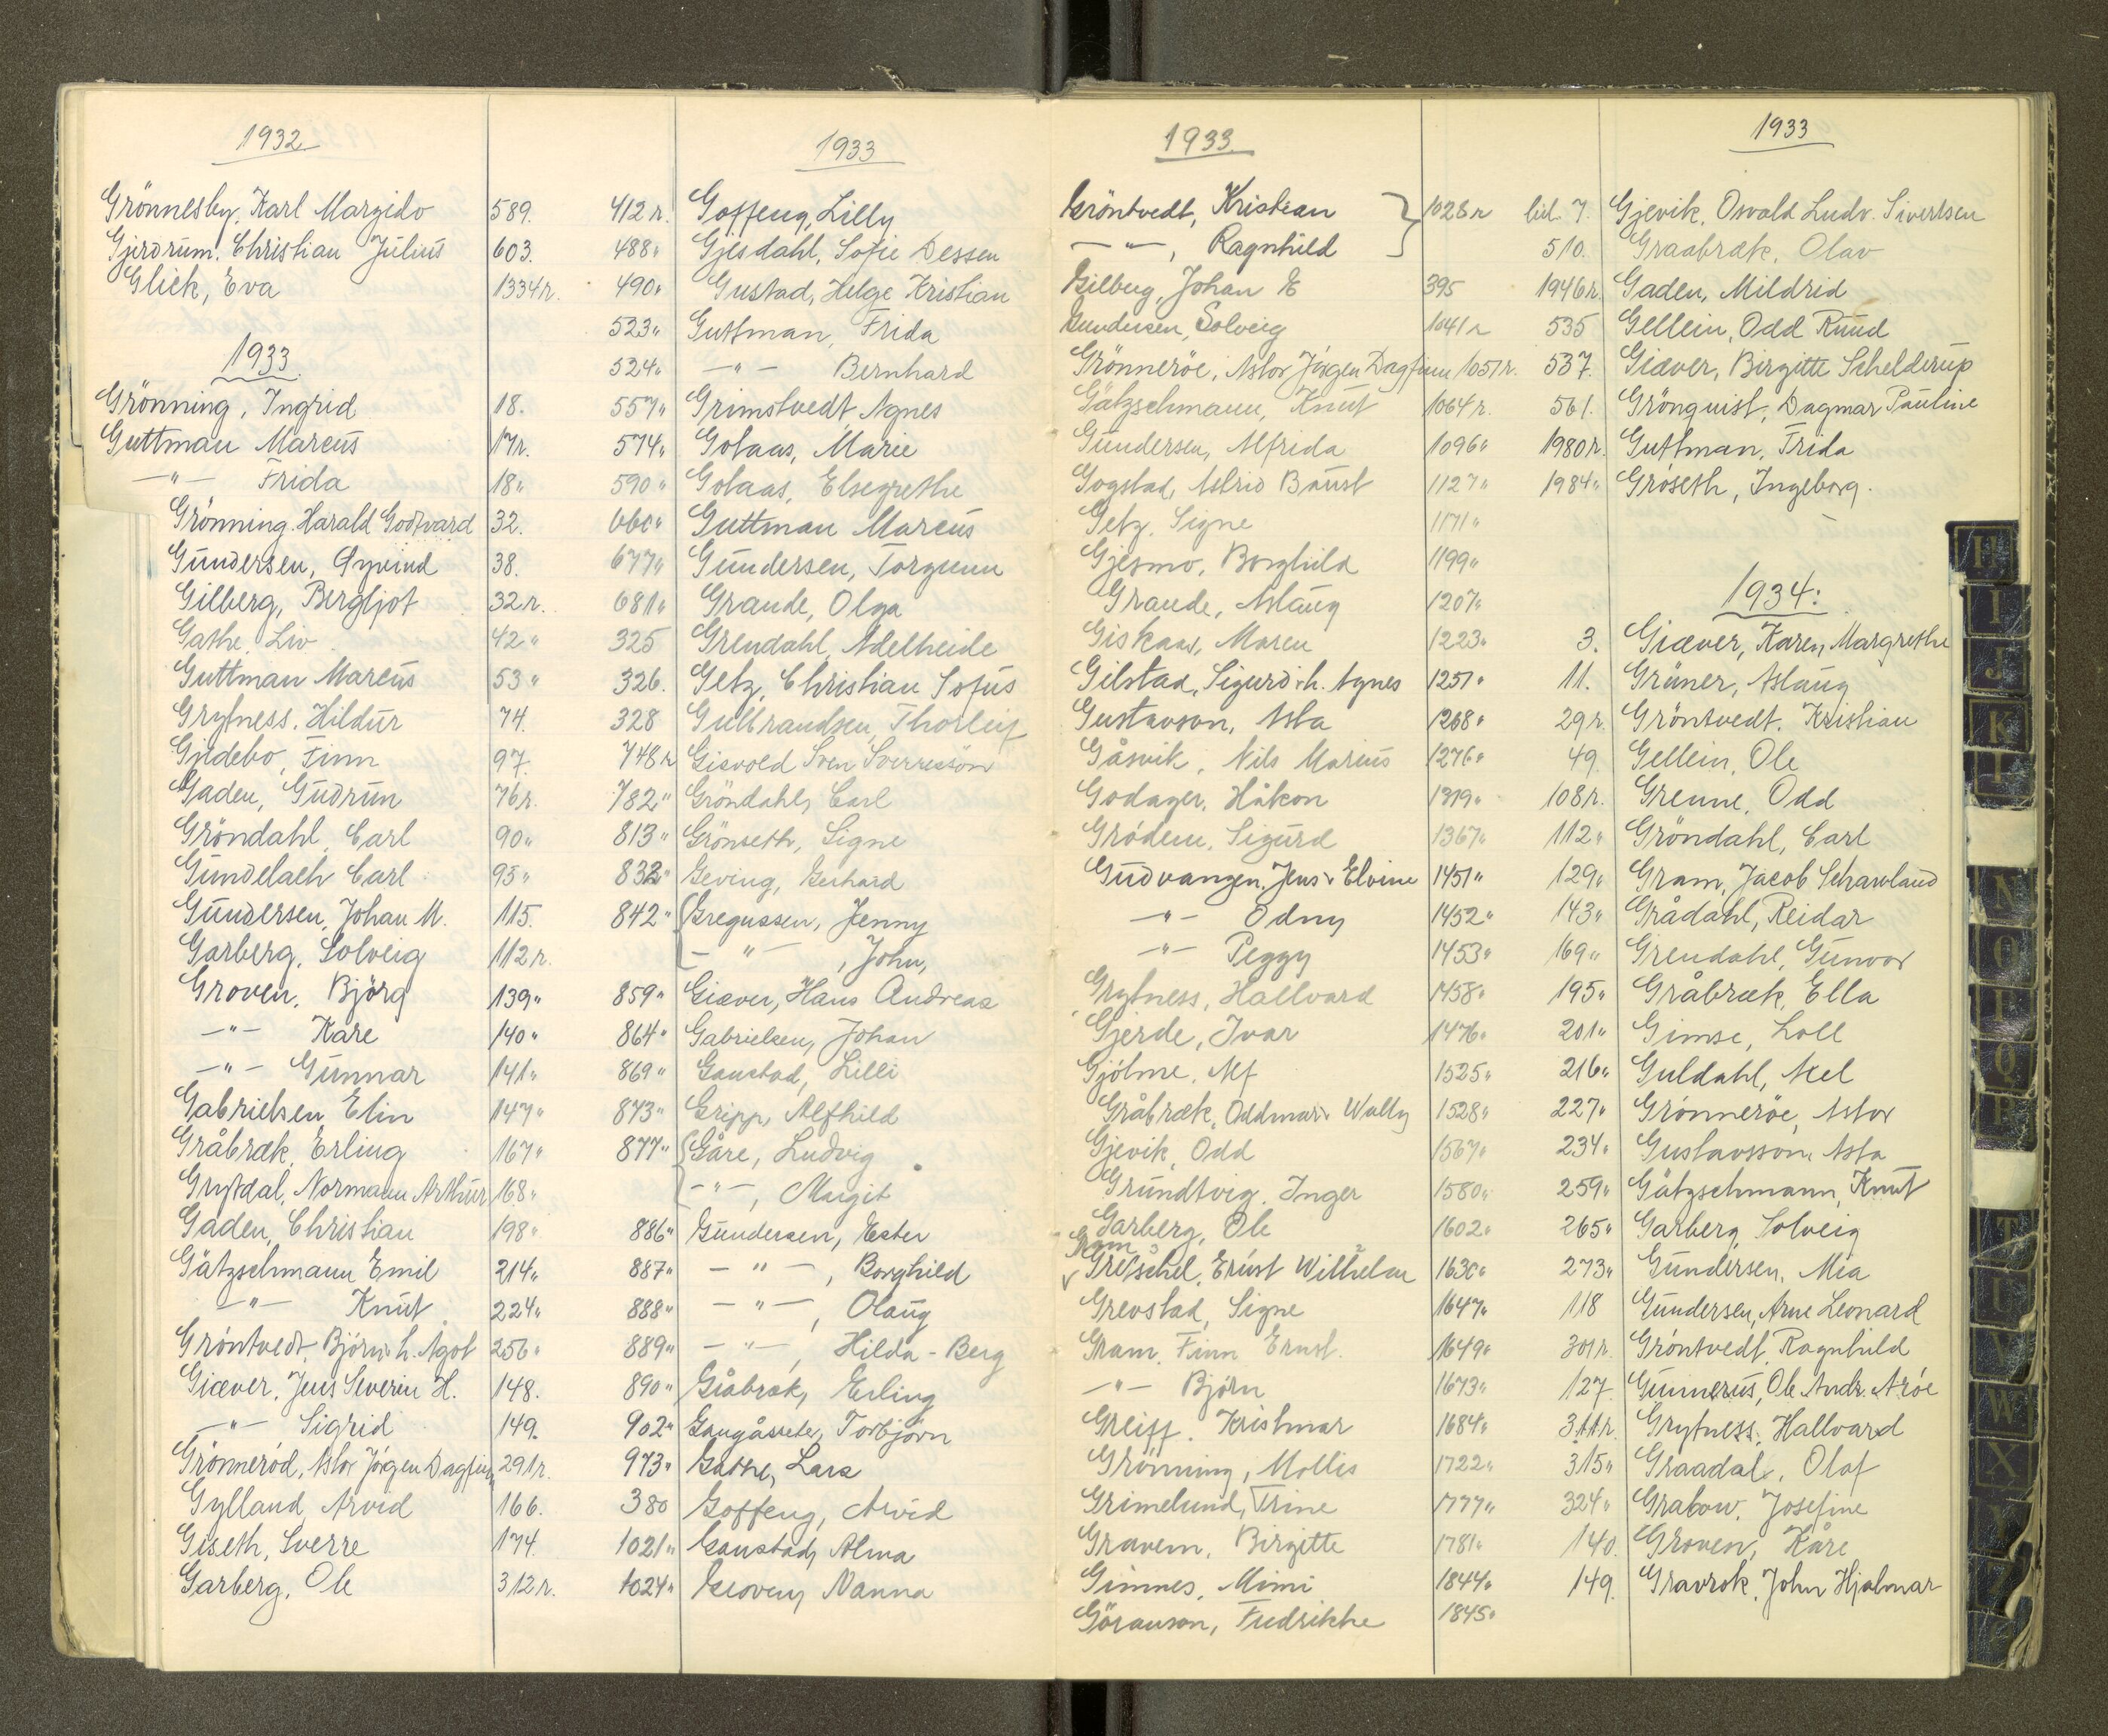 1932
Grönnesby, Karl Margido 589.
Gjerdrum, Christian Julius 603.
Glick, Eva 1334r.
1933
Grönning, Ingrid 18.
Guttman Marcus 17r.
—"— Frida 18"
Grönning. Harald Godtvard 32.
Gundersen, Öyvind 38.
Gilberg, Bergljot 32r.
Gathe, Liv 42"
Guttman Marcus 53"
Grytness. Hildur 74.
Gjeldebo, Finn 97.
Gaden, Gudrun 76r.
Gröndahl, Carl 90"
Gundelach Carl 95"
Gundersen, Johan M. 115.
Garberg, Solveig 112r.
Groven, Björg 139"
—"— Kare 140"
—"— Gunnar 141"
Gabrielsen Elin 147"
Gråbræk, Erling 167"
Grytdal, Normann Arthur 168"
Gaden, Christian 198"
Gätzschmann Emil 214"
—"— Knut 224"
Gröntvedt, Björn h. Agot 256"
Giæver, Jens Severin H. 148.
—"— Sigrid 149.
Grönneröd, Astor Jörgen Dagfinn 291r.
Gylland, Arvid 166.
Giseth, Sverre 174.
Garberg, Ole 312r.
1933
412r. Goffeng, Lilly
488" Gjesdahl, Sofie Dessen
490" Gustad, Helge Kristian
523" Guttman, Frida
524" —"— Bernhard
557" Grimstvedt Agnes
574" Gotaas, Marie
590" Gotaas, Elsegrethe
660" Guttman Marcus
677" Gundersen, Torgunn
681" Grande, Olga
325 Grendahl, Adelheide
326. Getz, Christian Sofus
328 Gulbrandsen, Thorleif
748r Gisvold Sven Sverresön
782" Gröndahl, Carl
813" Grönseth, Signe
832" Geving, Gerhard
842" Gregussen, Jenny
—"—, John,
859" Giæver, Hans Andreas
864" Gabrielsen, Johan
869" Ganstad, Lilli
873" Gripp, Alfhild
877" Gåre, Ludvig
—"—, Margit
886" Gundersen, Ester
887" —"—, Borghild
888" —"—, Olaug
889" —"—, Hilda-Berg
890" Gråbræk, Erling
902" Gangåsseter, Torbjörn
973" Gathe, Lars
380 Goffeng, Arvid
1021" Ganstad, Alma
1024" Groven, Nanna
1933
Gröntvedt, Kristian 1028r
—"—, Ragnhild
Gilberg, Johan E 395
Gundersen, Solveig 1041r
Grönneröe, Astor Jörgen Dagfinn 1051r.
Gätzschmann, Knut 1064r.
Gundersen, Alfrida 1096"
Gogstad, Astrid Baust 1127"
Getz, Signe 1171"
Gjesmo, Borghild 1199"
Grande, Aslaug 1207"
Giskaas, Maren 1223"
Gilstad, Sigurd h. Agnes 1251"
Gustavson, Asta 1268"
Gåsvik, Nils Marius 1276"
Godager, Håkon 1319"
Grödem, Sigurd 1367"
Gudvangen, Jens v Elvine 1451"
—"— Odny 1452"
—"— Peggy 1453"
Grytness, Hallvard 1458"
Gjerde, Ivar 1476"
Gjölme, Alf 1525"
Gråbræk, Oddmar v Wally 1528"
Gjevik, Odd 1567"
Grundtvig, Inger 1580"
Garberg, Ole 1602"
Gram
Gretschel, Ernst Wilhelm 1630"
Grevstad, Signe 1647"
Gram, Finn Ernst. 1649"
—"— Björn 1673"
Greiff. Kristmar 1684"
Grönning, Mollis 1722"
Grimelund, Trine 1777"
Gravem, Birgitte 1781"
Gimnes, Mimi 1844"
Göranson, Fredrikke 1845"
1933
bil. 7. Gjevik, Osvald Ludv. Sivertsen
510. Graabræk, Olav
1946r. Gaden, Mildrid
535 Gellein, Odd Ruud
537. Giæver, Birgitte Schelderup
561. Grönquist, Dagmar Pauline
1980r. Guttman, Frida
1984" Gröseth, Ingeborg.
1934:
3. Giæver, Karen Margrethe
11. Grüner, Aslaug
29r. Gröntvedt, Kristian
49 Gellein, Ole
108r. Grenne, Odd
112" Gröndahl, Carl
129" Gram, Jacob Schawland
143" Grådahl, Reidar
169" Grendahl, Gunvor
195" Gråbræk, Ella
201" Gimse, Loll
216" Guldahl, Axel
227" Grönneröe, Astor
234" Gustavsson, Asta
259" Gätzschmann, Knut
265" Garberg Solveig
273" Gundersen, Mia
118 Gundersen, Arne Leonard
301r. Gröntvedt, Ragnhild
127. Gunnerus, Ole Andr. Aröe
311r. Grytness, Hallvard
315" Graadal, Olaf
324" Grabow, Josefine
140. Groven, Kåre
149. Gravrok, John Hjalmar
H
I
J
K
L
N
O
P
Q
R
T
U
V
W
X
Y
Z